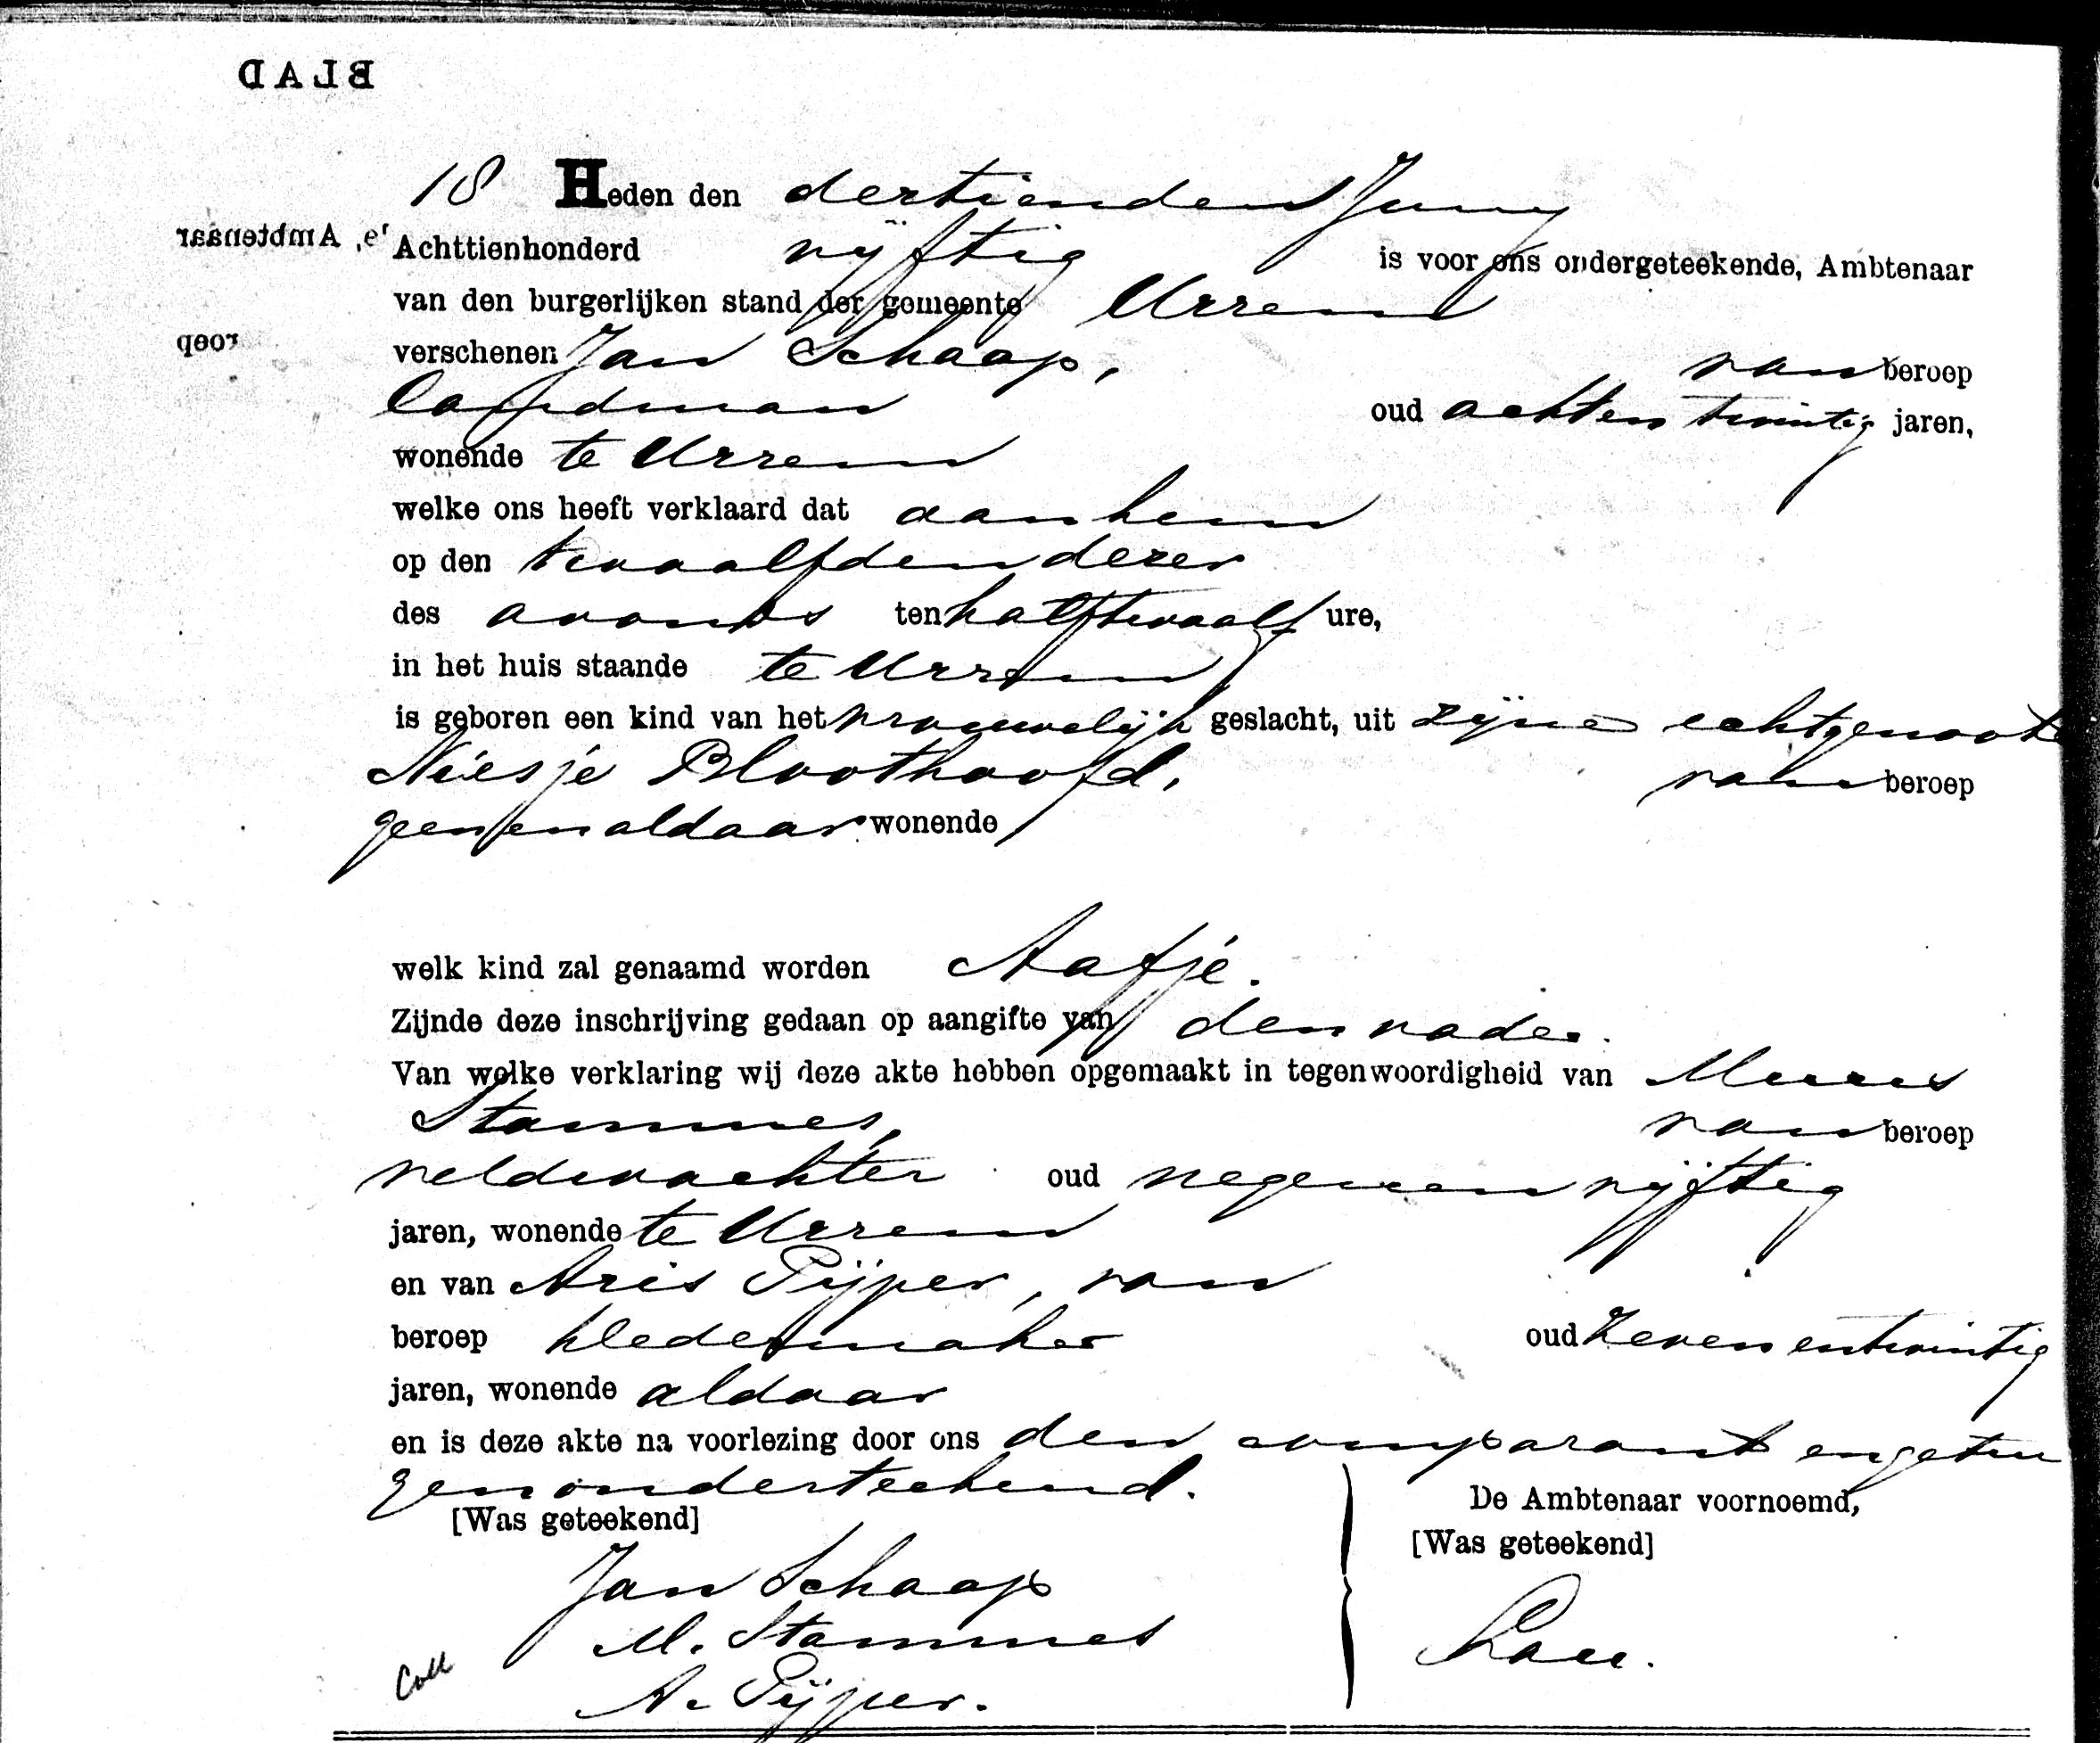 BLAD
18 Heden den dertienden Juny
e, Ambtenaar
Achttienhonderd vijftig is voor ons ondergeteekende, Ambtenaar
van den burgerlijken stand der gemeente Ursem
roep
verschenen Jan Schaap, van beroep
landman oud achtentwintig jaren,
wonende te Ursem
welke ons heeft verklaard dat aan hem
op den twaalfden dezer
des avonds ten half twaalf ure,
in het huis staande te Ursem
is geboren een kind van het vrouwelijk geslacht, uit zijne echtgenoote
Niesje Bloothoofd, van beroep
geen en aldaar wonende
welk kind zal genaamd worden Aafje.
Zijnde deze inschrijving gedaan op aangifte van den vader.
Van welke verklaring wij deze akte hebben opgemaakt in tegenwoordigheid van Meeres
Stammes, van beroep
veldwachter oud negenenvijftig
jaren, wonende te Ursem
en van Aris Pijper, van
beroep kledermaker oud zevenentwintig
jaren, wonende aldaar
en is deze akte na voorlezing door ons den comparant en getui
gen onderteekend.
[Was geteekend] De Ambtenaar voornoemd,
[Was geteekend]
Jan Schaap
M. Stammes
A. Pijper.
Coll